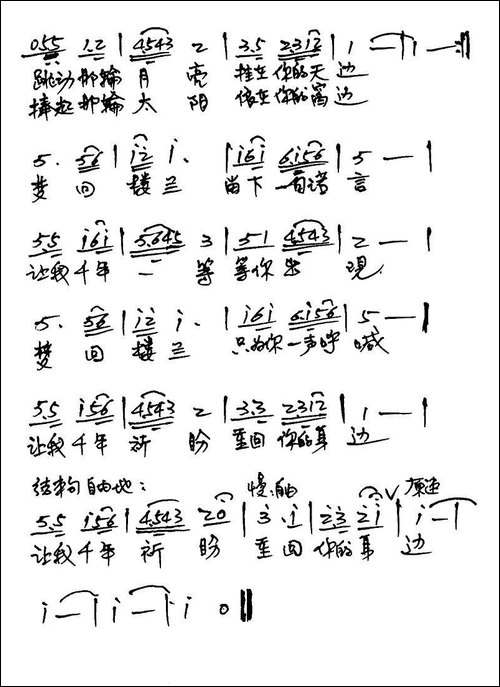 0555 1.2 | 4543 2 | 3.5 2312 | 1 — | 1 — :||
跳动那轮月 亮 挂在你的天 边
捧起那轮太 阳 依在你的窝 边
5. 56 | i2 i. | i6i 6i56 | 5 — |
梦 回 楼兰 留下一首诺 言
5.5 i6i | 5.645 3 | 51 4543 | 2 — |
让我千年 一 等 等你出 现
5. 56 | i2 i. | i6i 6i56 | 5 — ||
梦 回 楼兰 只为你一声呼 喊
5.5 i56 | 4543 2 | 3.3 2312 | 1 — |
让我千年 祈 盼 重回你的身 边
结束句自由地: 慢.自由 原速
5.5 i56 | 4543 20 | 3. 1 | 23 2i ∨ | i — |
让我千年 祈 盼 重回你的身 边
i — | i — | i 0 ||